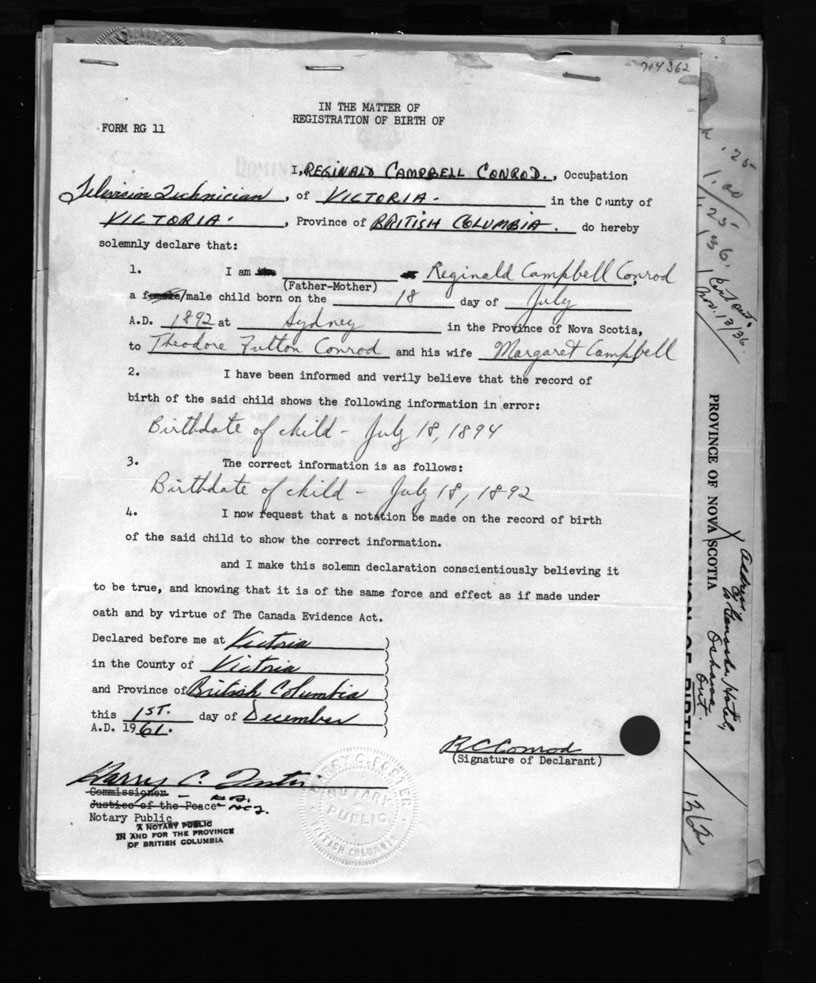 214362
IN THE MATTER OF
REGISTRATION OF BIRTH OF
FORM RG 11
I, REGINALD CAMPBELL CONROD., Occupation
Television Technician, of VICTORIA- in the County of
VICTORIA-, Province of BRITISH COLUMBIA. do hereby
solemnly declare that:
1. I am the Reginald Campbell Conrod,
(Father-Mother)
a female/male child born on the 18 day of July
A.D. 1892 at Sydney in the Province of Nova Scotia,
to Theodore Fulton Conrod and his wife Margaret Campbell
2. I have been informed and verily believe that the record of
birth of the said child shows the following information in error:
Birthdate of child - July 18, 1894
3. The correct information is as follows:
Birthdate of child - July 18, 1892
4. I now request that a notation be made on the record of birth
of the said child to show the correct information.
and I make this solemn declaration conscientiously believing it
to be true, and knowing that it is of the same force and effect as if made under
oath and by virtue of The Canada Evidence Act.
Declared before me at Victoria )
in the County of Victoria )
and Province of British Columbia )
this 1ST. day of December )
A.D. 1961. )
RCConrod
(Signature of Declarant)
Harry C. Foster
Commissioner
Justice of the Peace
Notary Public
A NOTARY PUBLIC
IN AND FOR THE PROVINCE
OF BRITISH COLUMBIA
HARRY C. FOSTER
NOTARY
PUBLIC
BRITISH COLUMBIA
.25
1.00
1.25
136.
Nov. 13/36.
PROVINCE OF NOVA SCOTIA
OF BIRTH
Address
Genosha Hotel,
Oshawa
Ont.
1362